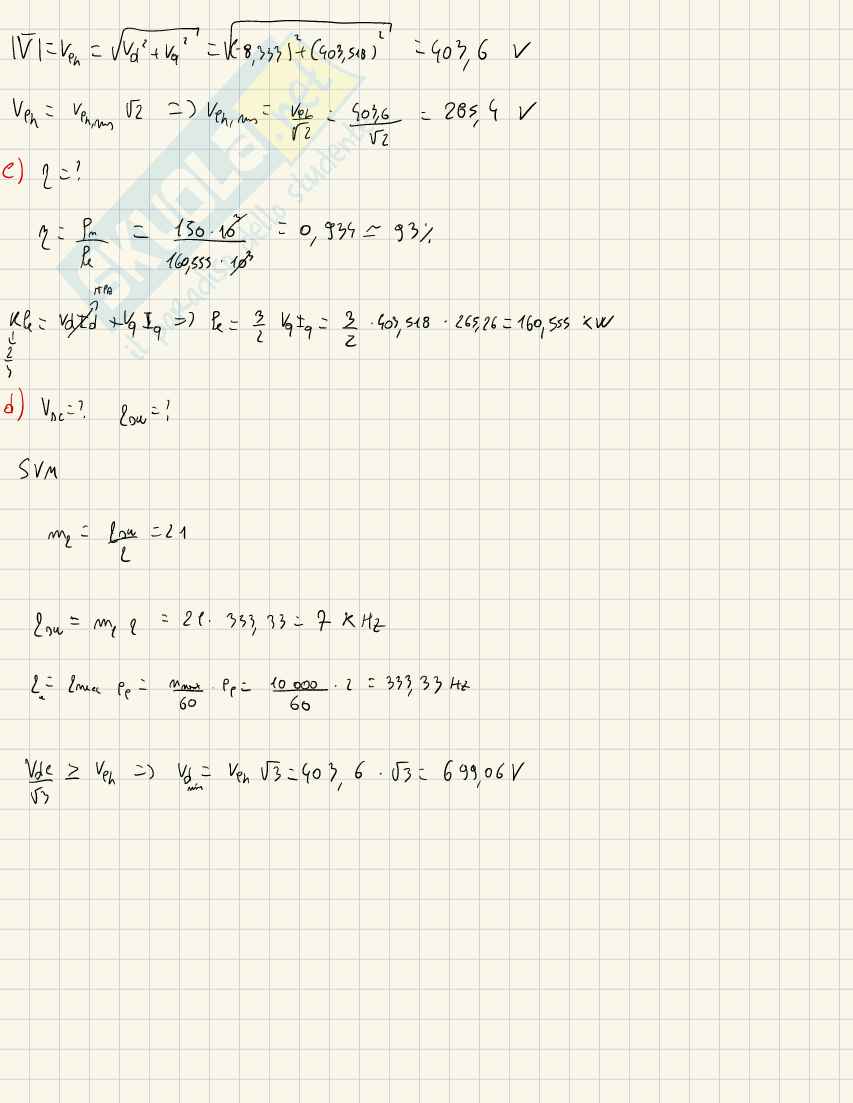 |V̅| = V_ph = √(V_d² + V_q²) = √((-8,333)² + (403,518)²) = 403,6 V
V_ph = V_ph,rms √2 => V_ph,rms = V_ph/√2 = 403,6/√2 = 285,4 V
c) η = ?
η = P_m/P_e = 150·10³/160,555·10³ = 0,934 ≃ 93%
MTPA
K P_e = V_d I_d + V_q I_q => P_e = 3/2 V_q I_q = 3/2 · 403,518 · 265,26 = 160,555 kW
↓
2/3
d) V_DC = ? f_sw = ?
SVM
m_f = f_sw/f = 21
f_sw = m_f f = 21 · 333,33 = 7 kHz
f = f_mecc p_p = n_max/60 · p_p = 10 000/60 · 2 = 333,33 Hz
V_dc/√3 ≥ V_ph => V_d min = V_ph √3 = 403,6 · √3 = 699,06 V
SKUOLA.net
il paradiso dello studente